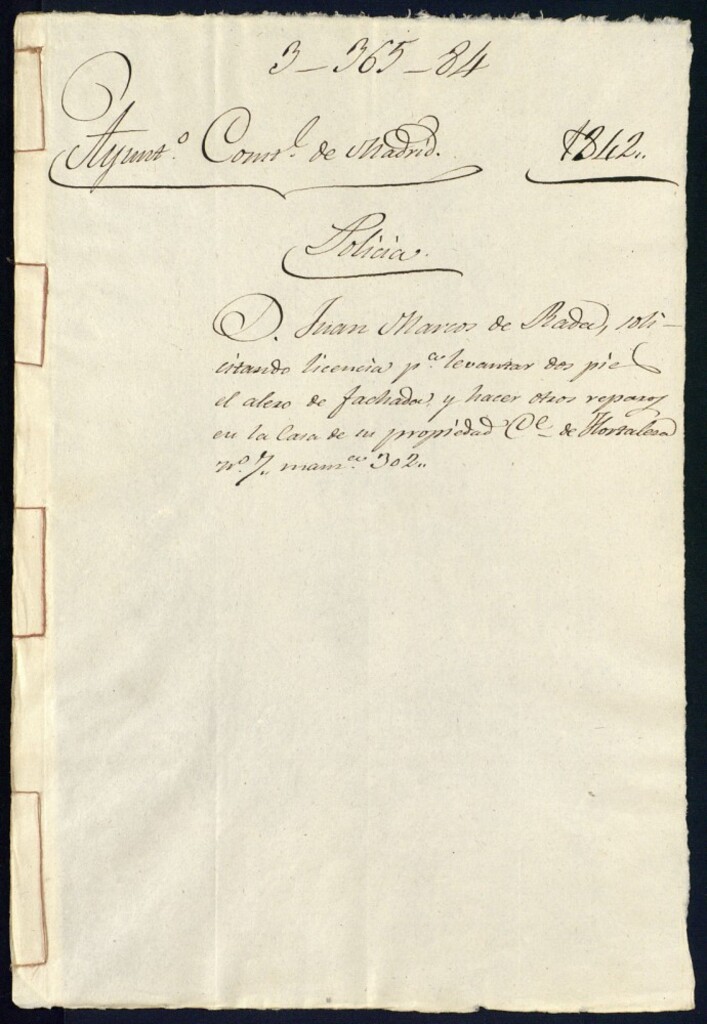 3-365-84
Ayunt.º Const.l de Madrid. 1842..
Policia.
D. Juan Marcos de Rada, soli-
citando licencia p.ª levantar dos pies
el alero de fachada, y hacer otros reparos
en la Casa de su propiedad C.e de Hortaleza
n.º 7.. manz.ª 302..